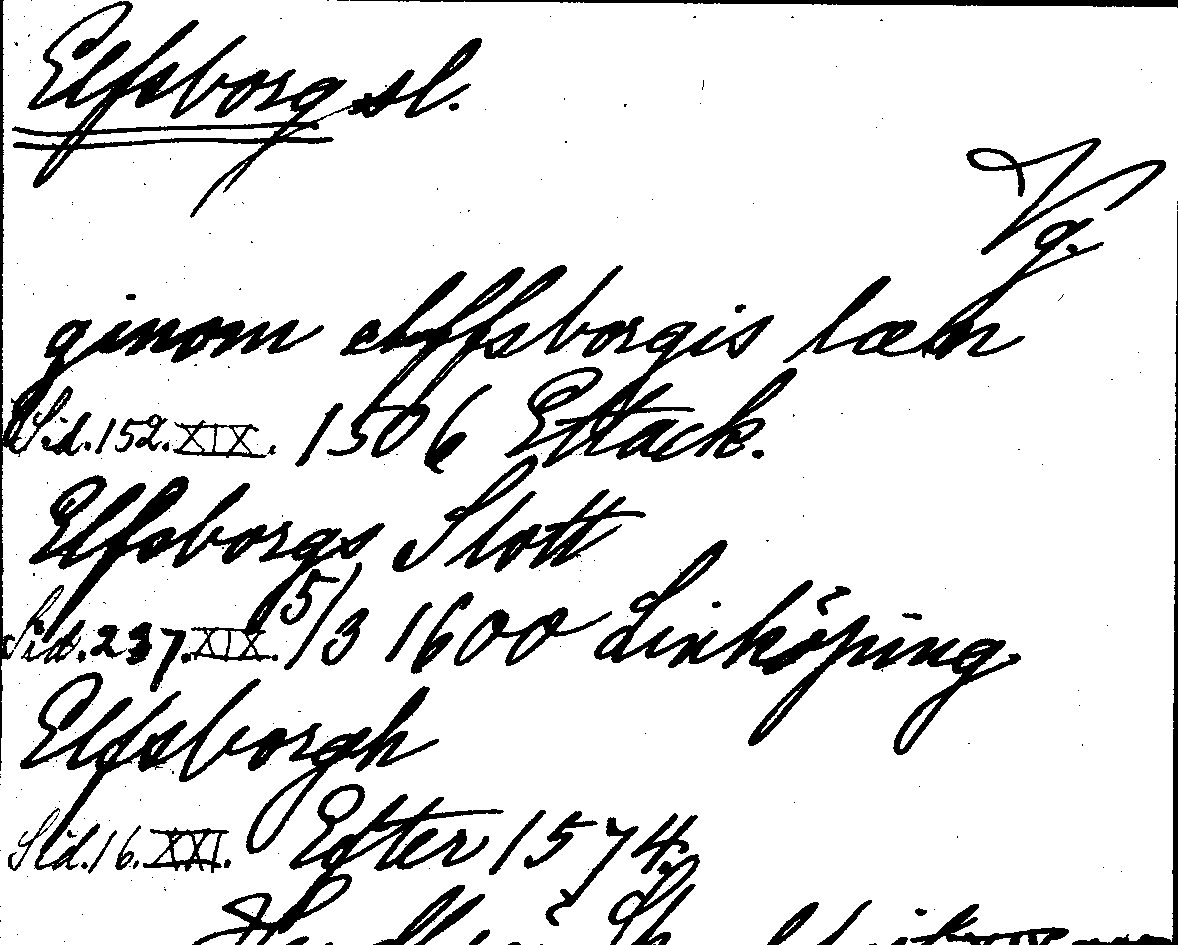 Elfsborg sl.
Vg.
ginom elffsborgis læn
Sid. 152. XIX. 1506 Ettack.
Elfsborgs Slott
Sid. 237. XIX. 5/3 1600 Linköping
Elfsborgh
Sid. 16. XXI. Edter 1574.